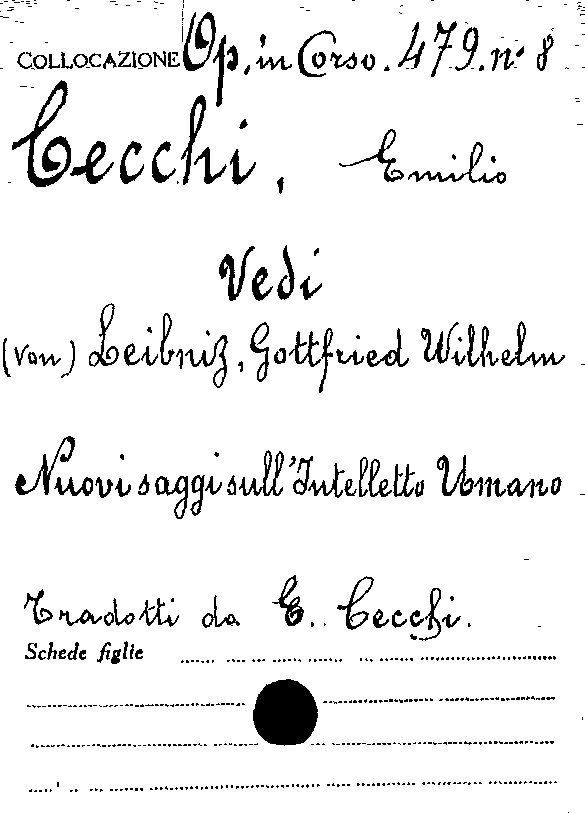 COLLOCAZIONE Op. in Corso. 479. n. 8
Cecchi, Emilio
Vedi
(von) Leibniz, Gottfried Wilhelm
Nuovi saggi sull'Intelletto Umano
Tradotti da E. Cecchi.
Schede figlie